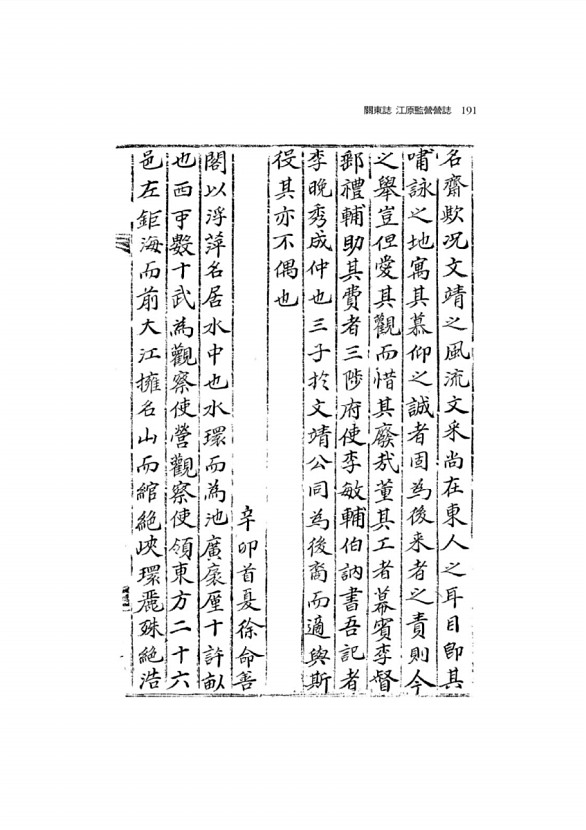 關東誌 江原監營營誌 191
名齋歟况文靖之風流文采尚在東人之耳目卽其
嘯詠之地寓其慕仰之誠者固爲後来者之責則今
之擧豈但愛其觀而惜其廢㢤董其工者幕賓李督
郵禮輔助其費者三陟府使李敏輔伯訥書吾記者
李晩秀成仲也三子於文靖公同爲後裔而適與斯
役其亦不偶也
辛卯首夏徐命善
閣以浮萍名居水中也水環而爲池廣袤厪十許畝
也西可數十武爲觀察使營觀察使領東方二十六
邑左鉅海而前大江擁名山而綰絶峽環麗殊絶浩